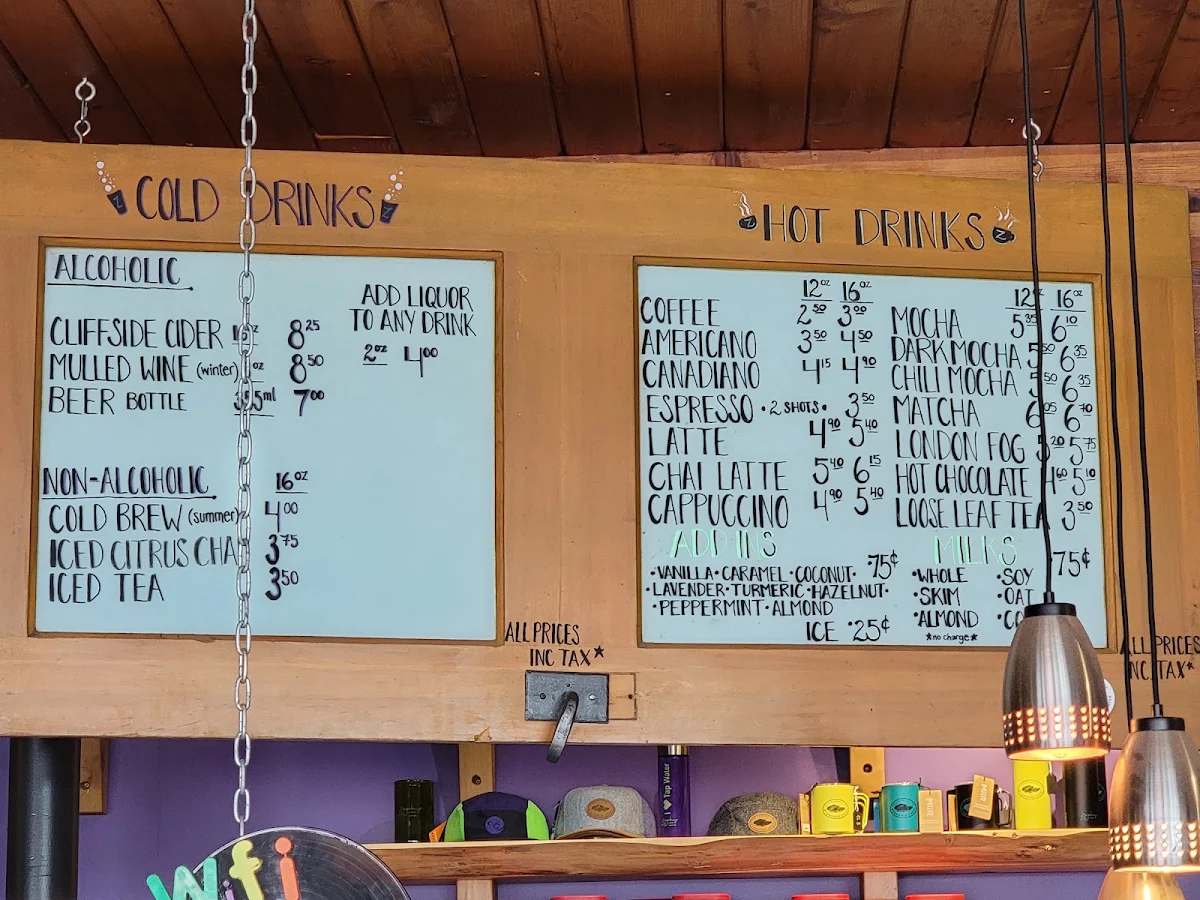 COLD DRINKS
ALCOHOLIC
CLIFFSIDE CIDER 8.25
MULLED WINE (winter) oz 8.50
BEER BOTTLE 355ml 7.00
ADD LIQUOR
TO ANY DRINK
2oz 4.00
NON-ALCOHOLIC 16oz
COLD BREW (summer) 4.00
ICED CITRUS CHAI 3.75
ICED TEA 3.50
ALL PRICES
INC TAX*
HOT DRINKS
12oz 16oz
COFFEE 2.50 3.00
AMERICANO 3.50 4.50
CANADIANO 4.15 4.90
ESPRESSO • 2 SHOTS • 3.50
LATTE 4.90 5.40
CHAI LATTE 5.40 6.15
CAPPUCCINO 4.90 5.40
12oz 16oz
MOCHA 5.35 6.10
DARK MOCHA 5.50 6.35
CHILI MOCHA 5.50 6.35
MATCHA 6.05 6.70
LONDON FOG 5.20 5.75
HOT CHOCOLATE 4.60 5.10
LOOSE LEAF TEA 3.50
ADD-INS
•VANILLA•CARAMEL•COCONUT• •75¢
•LAVENDER•TURMERIC•HAZELNUT•
•PEPPERMINT•ALMOND
ICE •25¢
MILKS •75¢
•WHOLE •SOY
•SKIM •OAT
•ALMOND
*no charge*
ALL PRICES
INC TAX*
Tap Water
MiiR
Wifi